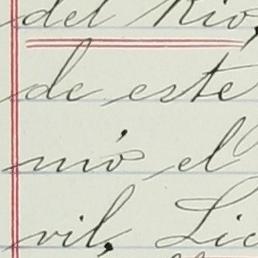 del Río,
de este
mó el
vil, Lic